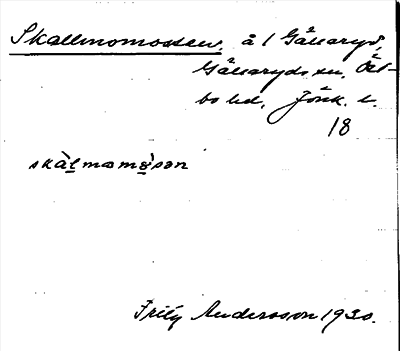 Skallmomossen, å 1 Gällaryd,
Gällaryds sn, Öst-
bo hd, Jönk. l.
18
skàlmomòsən
Frity Andersson 1930.